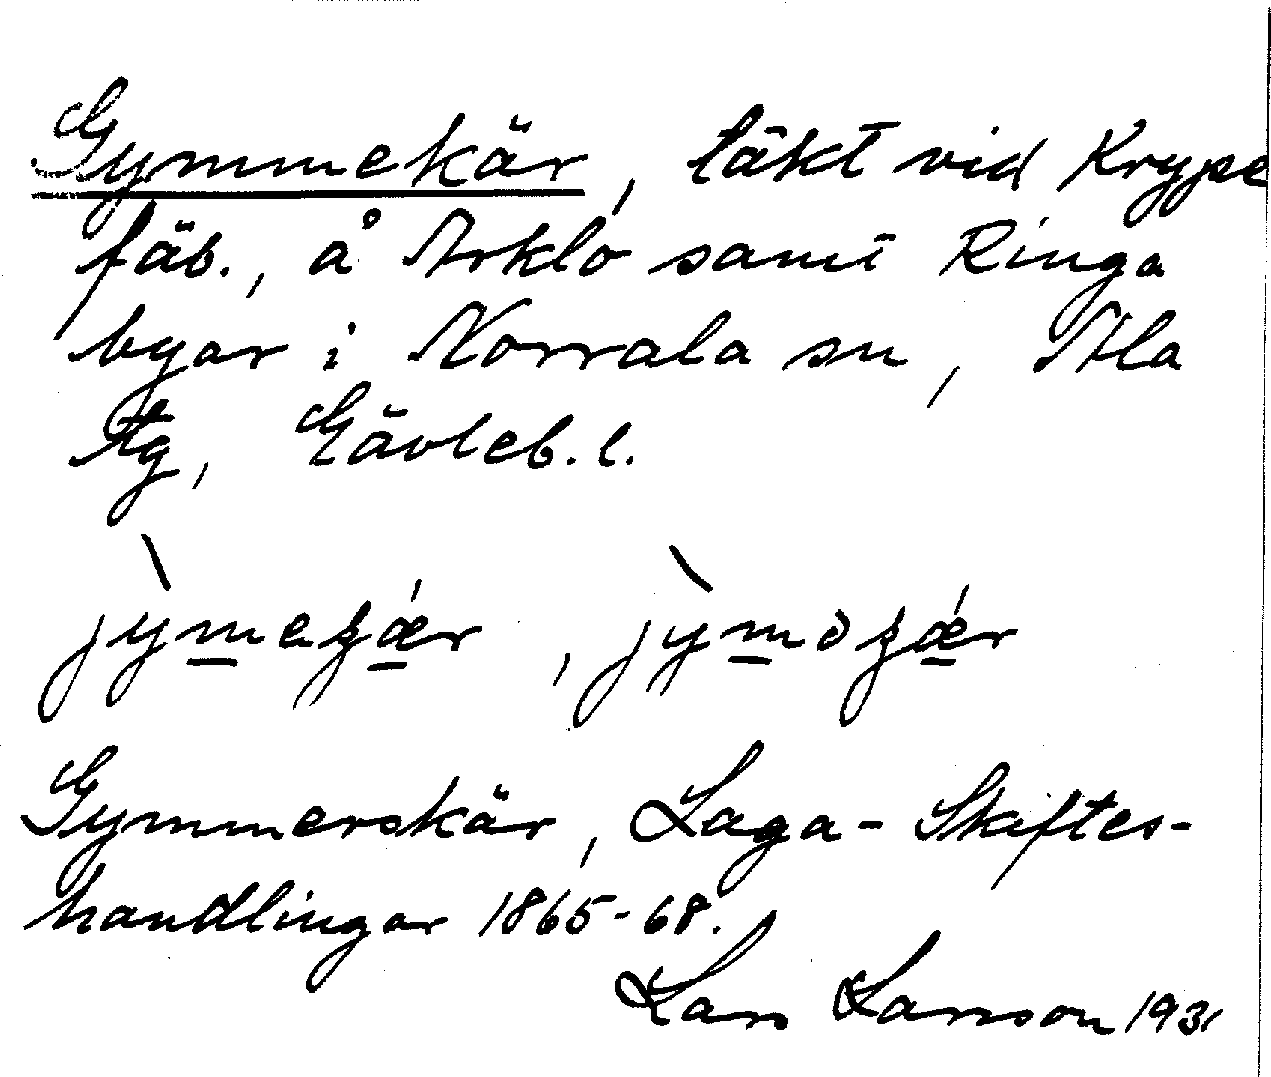 Gymmekär, täkt vid Krype
fäb., å Arklo samt Ringa
byar i Norrala sn, Ala
tg, Gävleb. l.
jỳmegǽr, jỳmɔgǽr
Gymmerskär, Laga-Skiftes-
handlingar 1865-68.
Lars Larsson 1931